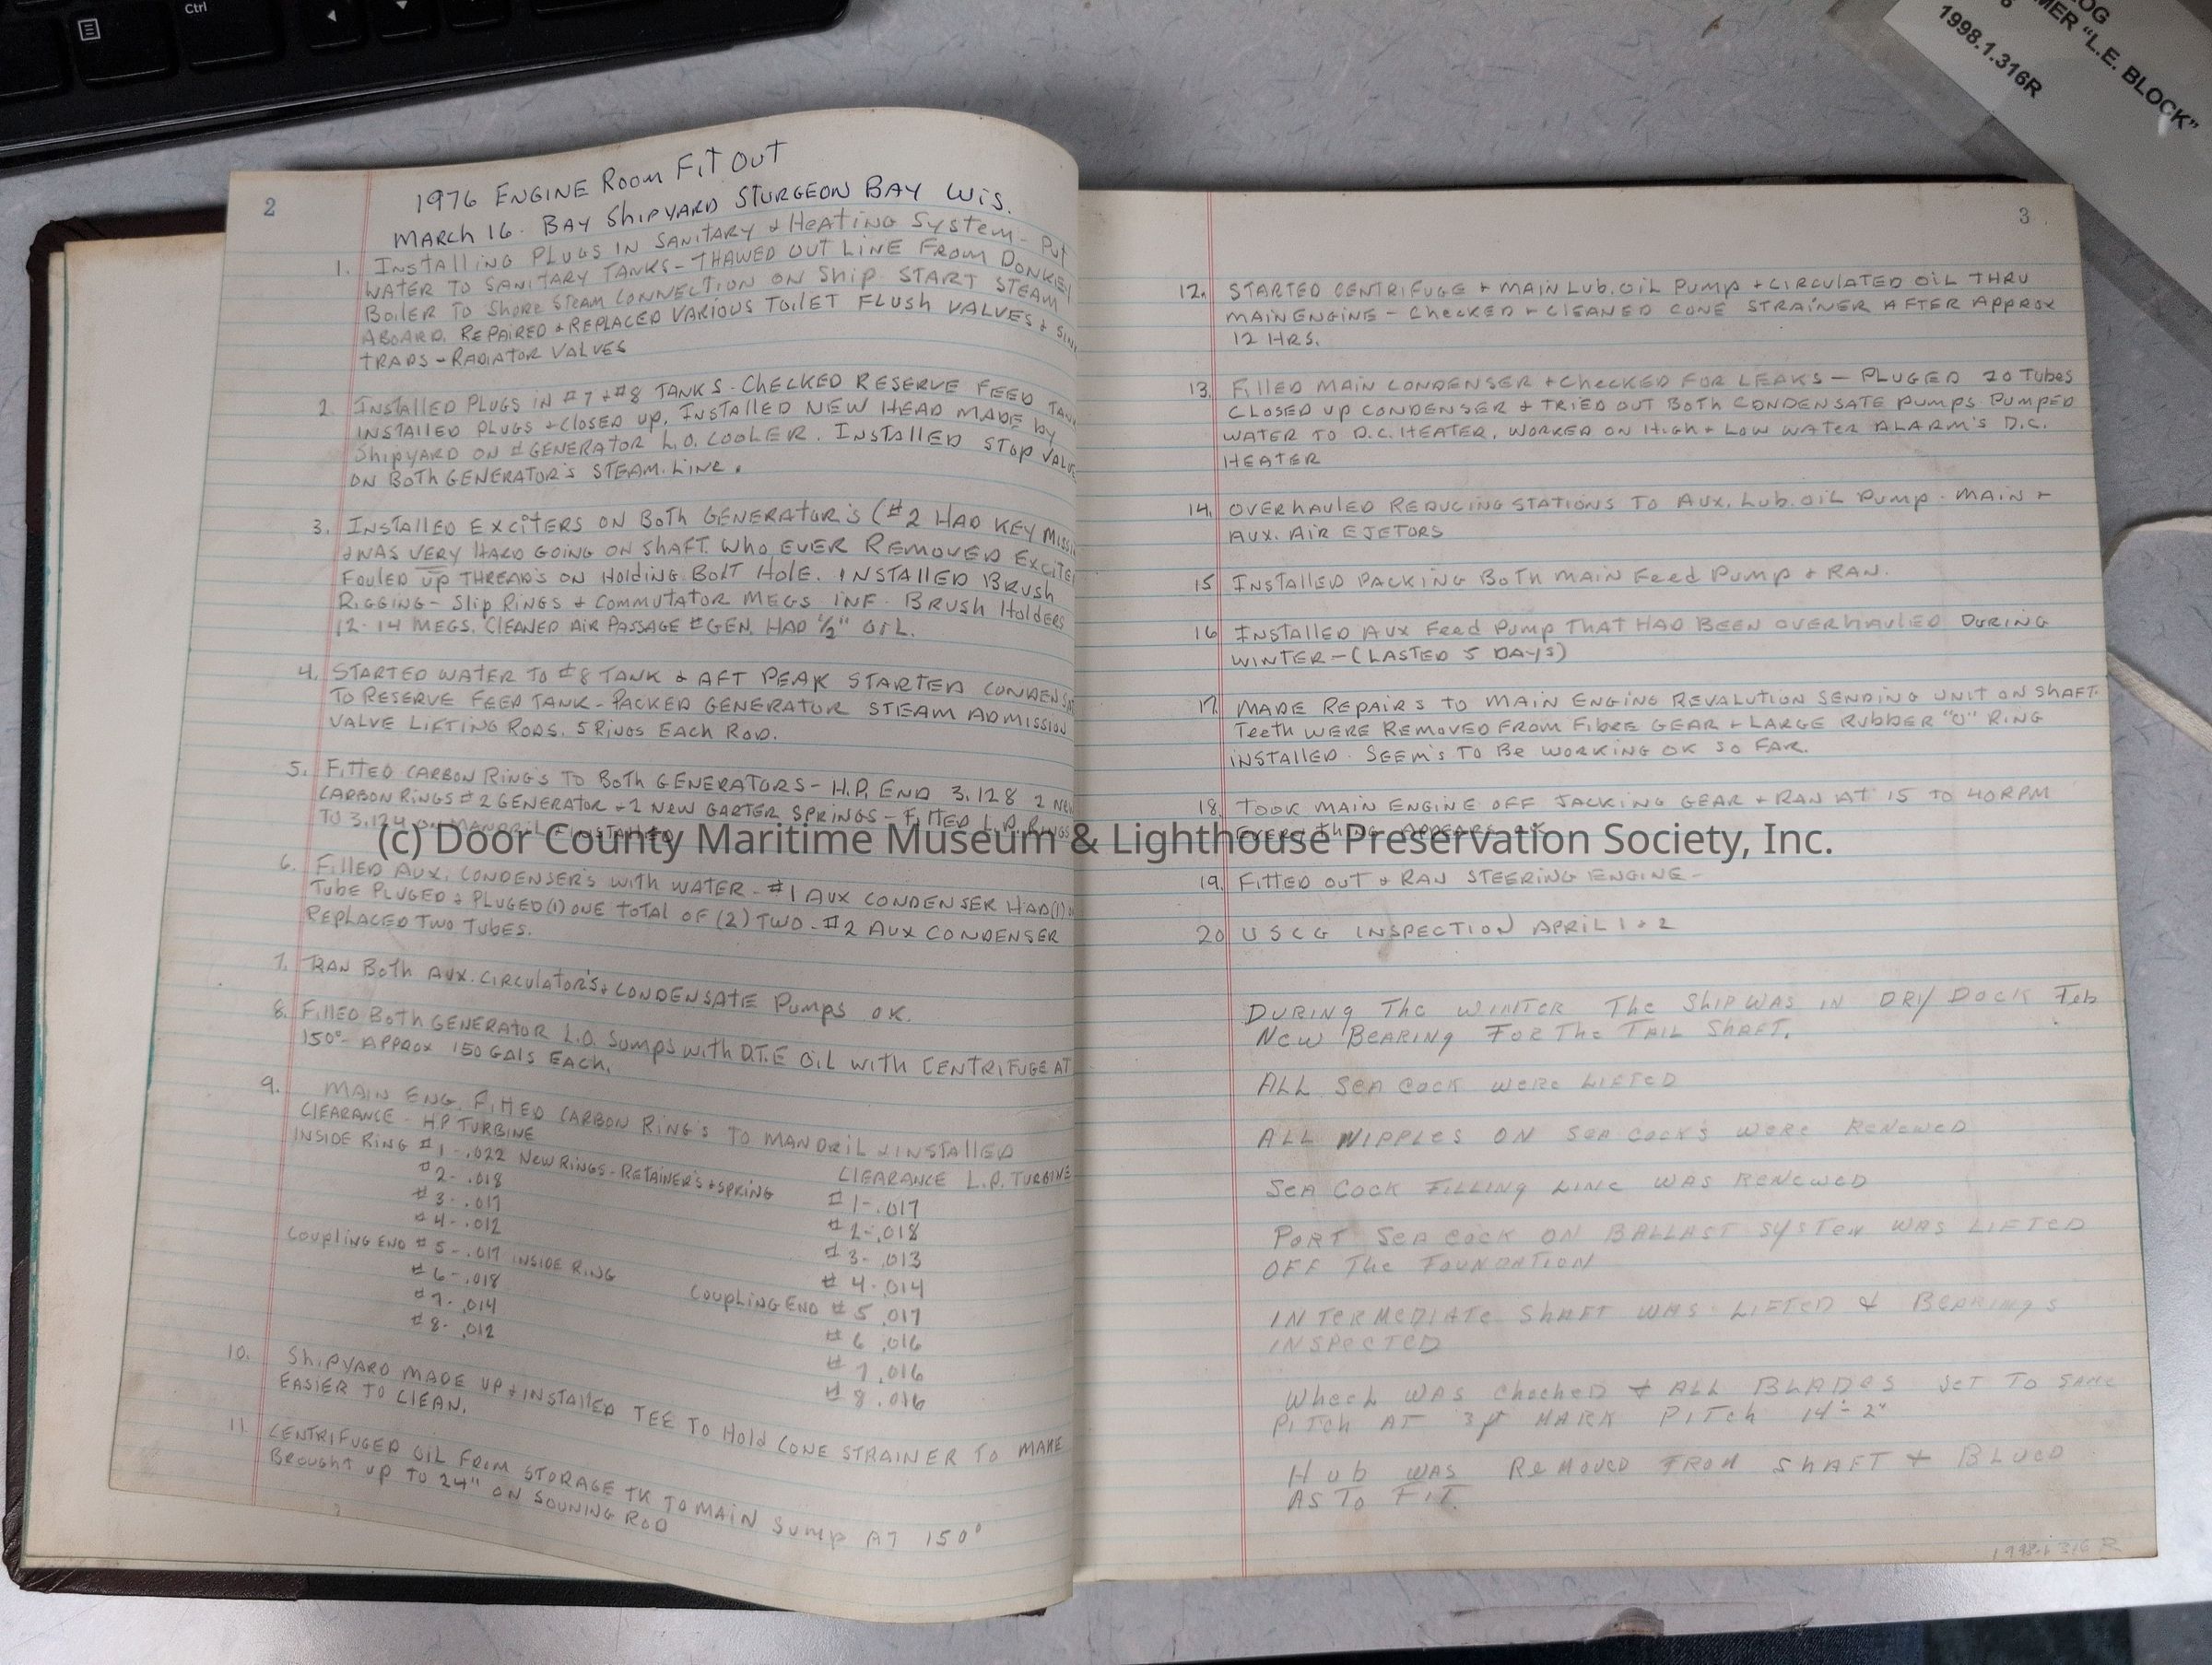 Ctrl
LOG
"L.E. BLOCK"
1998.1.316R
2
1976 ENGINE ROOM FIT OUT
MARCH 16. BAY SHIPYARD STURGEON BAY WIS.
1. INSTALLING PLUGS IN SANITARY & HEATING SYSTEM - PUT
WATER TO SANITARY TANKS - THAWED OUT LINE FROM DONKEY
BOILER TO SHORE STEAM CONNECTION ON SHIP. START STEAM
ABOARD. REPAIRED & REPLACED VARIOUS TOILET FLUSH VALVES &
TRAPS - RADIATOR VALVES
2. INSTALLED PLUGS IN #7 & #8 TANKS - CHECKED RESERVE FEED
INSTALLED PLUGS & CLOSED UP. INSTALLED NEW HEAD MADE BY
SHIPYARD ON # GENERATOR L.O. COOLER. INSTALLED STOP
ON BOTH GENERATOR'S STEAM. LINE.
3. INSTALLED EXCITERS ON BOTH GENERATOR'S (#2 HAD KEY
& WAS VERY HARD GOING ON SHAFT. WHO EVER REMOVED
FOULED UP THREAD'S ON HOLDING BOLT HOLE. INSTALLED BRUSH
RIGGING - SLIP RINGS & COMMUTATOR MEGS INF. BRUSH HOLDERS
12-14 MEGS. CLEANED AIR PASSAGE # GEN. HAD 1/2" OIL.
4. STARTED WATER TO #8 TANK & AFT PEAK STARTED
TO RESERVE FEED TANK - PACKED GENERATOR STEAM ADMISSION
VALVE LIFTING RODS. 5 RINGS EACH ROD.
5. FITTED CARBON RING'S TO BOTH GENERATORS - H.P. END 3.128 2 NEW
CARBON RINGS #2 GENERATOR & 2 NEW GARTER SPRINGS - FITTED L.P. RINGS
TO 3.124 ON MANDRIL & INSTALLED
6. FILLED AUX. CONDENSER'S WITH WATER - #1 AUX CONDENSER HAD (1)
TUBE PLUGED & PLUGED (1) ONE TOTAL OF (2) TWO - #2 AUX CONDENSER
REPLACED TWO TUBES.
7. RAN BOTH AUX. CIRCULATOR'S & CONDENSATE PUMPS OK.
8. FILLED BOTH GENERATOR L.O. SUMPS WITH D.T.E OIL WITH CENTRIFUGE AT
150° - APPROX 150 GALS EACH.
9. MAIN ENG. FITTED CARBON RING'S TO MANDRIL & INSTALLED
CLEARANCE - HP TURBINE
INSIDE RING #1 - .022 NEW RINGS - RETAINER'S & SPRING
#2 - .018
#3 - .017
#4 - .012
COUPLING END #5 - .017 INSIDE RING
#6 - .018
#7 - .014
#8 - .012
CLEARANCE L.P. TURBINE
#1 - .017
#2 - .018
#3 - .013
#4 - .014
COUPLING END #5 .017
#6 .016
#7 .016
#8 .016
10. SHIPYARD MADE UP & INSTALLED TEE TO HOLD CONE STRAINER TO MAKE
EASIER TO CLEAN.
11. CENTRIFUGED OIL FROM STORAGE TK TO MAIN SUMP AT 150°
BROUGHT UP TO 24" ON SOUNING ROD
3
12. STARTED CENTRIFUGE + MAIN LUB. OIL PUMP + CIRCULATED OIL THRU
MAIN ENGINE - CHECKED + CLEANED CONE STRAINER AFTER APPROX
12 HRS.
13. FILLED MAIN CONDENSER + CHECKED FOR LEAKS - PLUGED 20 TUBES
CLOSED UP CONDENSER & TRIED OUT BOTH CONDENSATE PUMPS PUMPED
WATER TO D.C. HEATER. WORKED ON HIGH & LOW WATER ALARM'S D.C.
HEATER
14. OVERHAULED REDUCING STATIONS TO AUX. LUB. OIL PUMP - MAIN +
AUX. AIR EJETORS
15 INSTALLED PACKING BOTH MAIN FEED PUMP & RAN.
16 INSTALLED AUX FEED PUMP THAT HAD BEEN OVERHAULED DURING
WINTER - (LASTED 5 DAYS)
17. MADE REPAIRS TO MAIN ENGING REVALUTION SENDING UNIT ON SHAFT.
TEETH WERE REMOVED FROM FIBRE GEAR & LARGE RUBBER "O" RING
INSTALLED. SEEM'S TO BE WORKING OK SO FAR.
18. TOOK MAIN ENGINE OFF JACKING GEAR & RAN AT 15 TO 40 RPM
EVERYTHING APPEARS OK
19. FITTED OUT & RAN STEERING ENGINE -
20 USCG INSPECTION APRIL 1 & 2
DURING THE WINTER THE SHIP WAS IN DRY DOCK FEB
NEW BEARING FOR THE TAIL SHAFT.
ALL SEA COCK WERE LIFTED
ALL NIPPLES ON SEA COCK'S WERE RENEWED
SEA COCK FILLING LINE WAS RENEWED
PORT SEA COCK ON BALLAST SYSTEM WAS LIFTED
OFF THE FOUNDATION
INTERMEDIATE SHAFT WAS LIFTED & BEARINGS
INSPECTED
WHEEL WAS CHECHED & ALL BLADES SET TO SAME
PITCH AT 3 ft MARK PITCH 14'-2"
HUB WAS REMOVED FROM SHAFT & BLUED
AS TO FIT.
1998.1.316 R
(c) Door County Maritime Museum & Lighthouse Preservation Society, Inc.